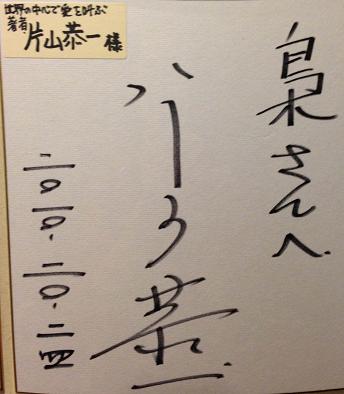 世界の中心で愛を叫ぶ
著者 片山恭一様
梟さんへ
片山恭一
二〇一〇.一〇.二四